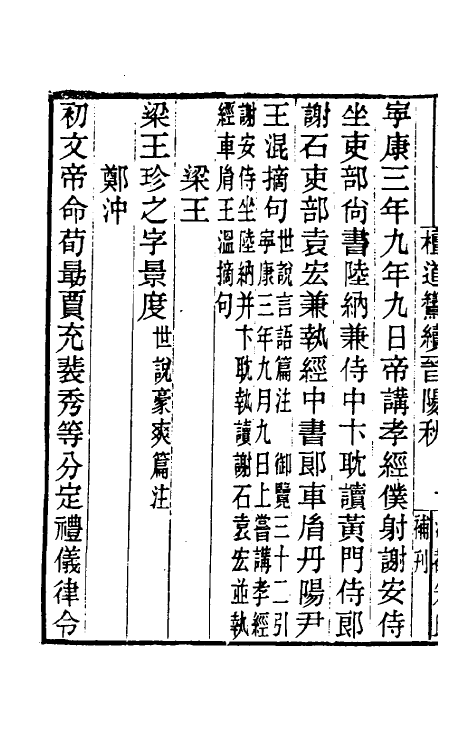 檀道鸞續晉陽秋
補刊
寧康三年九年九日帝講孝經僕射謝安侍
坐吏部尙書陸納兼侍中卞耽讀黃門侍郞
謝石吏部袁宏兼執經中書郞車胤丹陽尹
王混摘句世說言語篇注 御覽三十二引
寧康三年九月九日上嘗講孝經
謝安侍坐陸納并卞耽執讀謝石袁宏並執
經車胤王溫摘句
梁王
梁王珍之字景度世說豪爽篇注
鄭沖
初文帝命荀勗賈充裴秀等分定禮儀律令